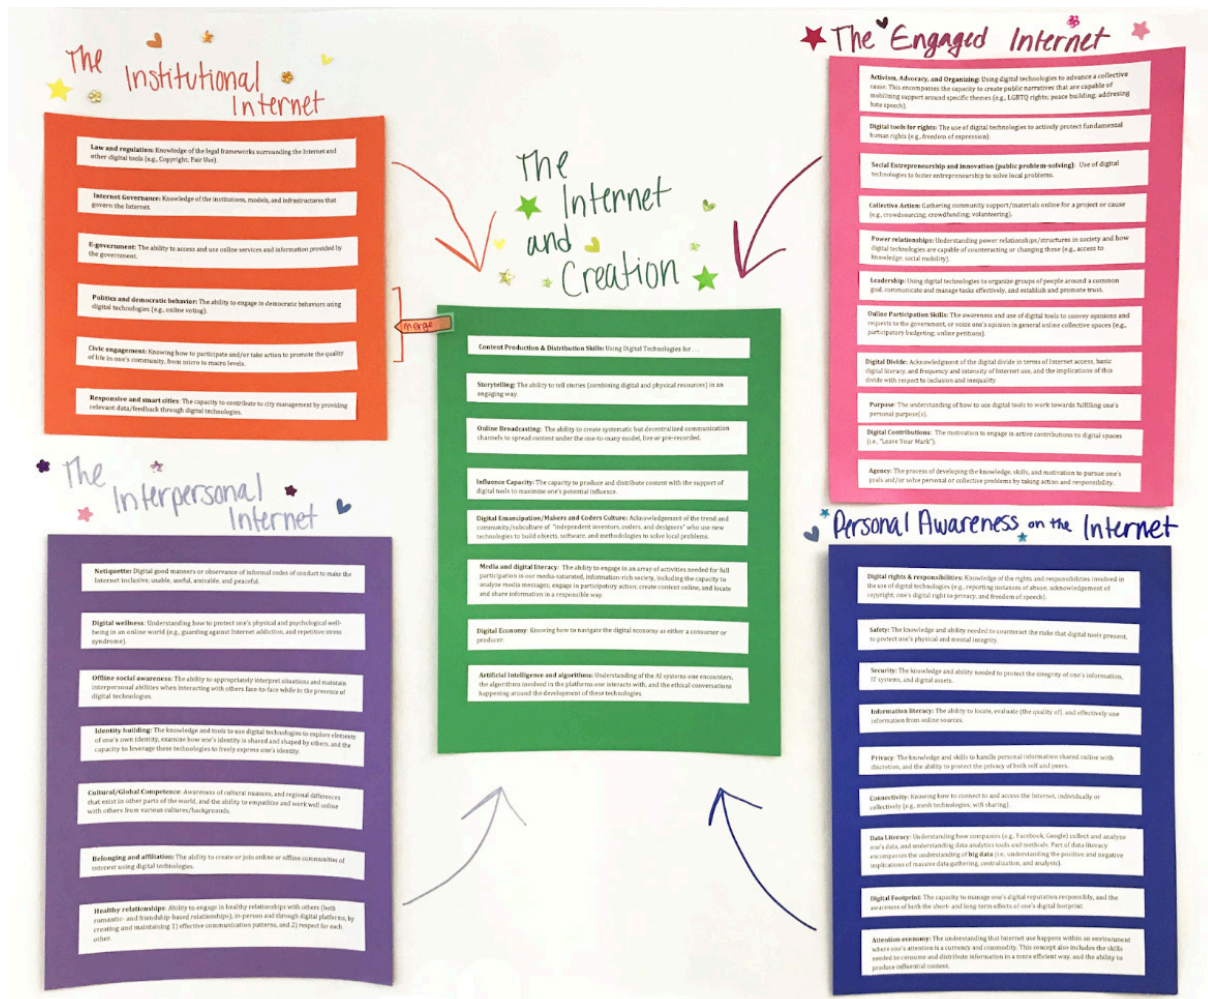 The
Institutional
Internet
Law and regulation: Knowledge of the legal frameworks surrounding the Internet and
other digital tools (e.g., Copyright, Fair Use).
Internet Governance: Knowledge of the institutions, models, and infrastructures that
govern the Internet.
E-government: The ability to access and use online services and information provided by
the government.
Politics and democratic behavior: The ability to engage in democratic behaviors using
digital technologies (e.g., online voting).
Civic engagement: Knowing how to participate and/or take action to promote the quality
of life in one's community, from micro to macro levels.
Responsive and smart cities: The capacity to contribute to city management by providing
relevant data/feedback through digital technologies.
merge
The
Interpersonal
Internet
Netiquette: Digital good manners or observance of informal codes of conduct to make the
Internet inclusive, usable, useful, amicable, and peaceful.
Digital wellness: Understanding how to protect one's physical and psychological well-
being in an online world (e.g., guarding against Internet addiction, and repetitive stress
syndrome).
Offline social awareness: The ability to appropriately interpret situations and maintain
interpersonal abilities when interacting with others face-to-face while in the presence of
digital technologies.
Identity building: The knowledge and tools to use digital technologies to explore elements
of one's own identity, examine how one's identity is shared and shaped by others, and the
capacity to leverage these technologies to freely express one's identity.
Cultural/Global Competence: Awareness of cultural nuances, and regional differences
that exist in other parts of the world, and the ability to empathize and work well online
with others from various cultures/backgrounds.
Belonging and affiliation: The ability to create or join online or offline communities of
interest using digital technologies.
Healthy relationships: Ability to engage in healthy relationships with others (both
romantic- and friendship-based relationships), in-person and through digital platforms, by
creating and maintaining 1) effective communication patterns, and 2) respect for each
other.
The
Internet
and
Creation
Content Production & Distribution Skills: Using Digital Technologies for . . .
Storytelling: The ability to tell stories (combining digital and physical resources) in an
engaging way.
Online Broadcasting: The ability to create systematic but decentralized communication
channels to spread content under the one-to-many model, live or pre-recorded.
Influence Capacity: The capacity to produce and distribute content with the support of
digital tools to maximize one's potential influence.
Digital Emancipation/Makers and Coders Culture: Acknowledgement of the trend and
community/subculture of "independent inventors, coders, and designers" who use new
technologies to build objects, software, and methodologies to solve local problems.
Media and digital literacy: The ability to engage in an array of activities needed for full
participation in our media-saturated, information-rich society, including the capacity to
analyze media messages; engage in participatory action; create content online, and locate
and share information in a responsible way.
Digital Economy: Knowing how to navigate the digital economy as either a consumer or
producer.
Artificial Intelligence and algorithms: Understanding of the AI systems one encounters,
the algorithms involved in the platforms one interacts with, and the ethical conversations
happening around the development of these technologies.
The Engaged Internet
Activism, Advocacy, and Organizing: Using digital technologies to advance a collective
cause. This encompasses the capacity to create public narratives that are capable of
mobilizing support around specific themes (e.g., LGBTQ rights; peace building; addressing
hate speech).
Digital tools for rights: The use of digital technologies to actively protect fundamental
human rights (e.g., freedom of expression).
Social Entrepreneurship and innovation (public problem-solving): Use of digital
technologies to foster entrepreneurship to solve local problems.
Collective Action: Gathering community support/materials online for a project or cause
(e.g., crowdsourcing; crowdfunding; volunteering).
Power relationships: Understanding power relationships/structures in society and how
digital technologies are capable of counteracting or changing those (e.g., access to
knowledge; social mobility).
Leadership: Using digital technologies to organize groups of people around a common
goal, communicate and manage tasks effectively, and establish and promote trust.
Online Participation Skills: The awareness and use of digital tools to convey opinions and
requests to the government, or voice one's opinion in general online collective spaces (e.g.,
participatory budgeting; online petitions).
Digital Divide: Acknowledgment of the digital divide in terms of Internet access, basic
digital literacy, and frequency and intensity of Internet use, and the implications of this
divide with respect to inclusion and inequality.
Purpose: The understanding of how to use digital tools to work towards fulfilling one's
personal purpose(s).
Digital Contributions: The motivation to engage in active contributions to digital spaces
(i.e., "Leave Your Mark").
Agency: The process of developing the knowledge, skills, and motivation to pursue one's
goals and/or solve personal or collective problems by taking action and responsibility.
Personal Awareness on the Internet
Digital rights & responsibilities: Knowledge of the rights and responsibilities involved in
the use of digital technologies (e.g., reporting instances of abuse; acknowledgement of
copyright; one's digital right to privacy, and freedom of speech).
Safety: The knowledge and ability needed to counteract the risks that digital tools present,
to protect one's physical and mental integrity.
Security: The knowledge and ability needed to protect the integrity of one's information,
IT systems, and digital assets.
Information literacy: The ability to locate, evaluate (the quality of), and effectively use
information from online sources.
Privacy: The knowledge and skills to handle personal information shared online with
discretion, and the ability to protect the privacy of both self and peers.
Connectivity: Knowing how to connect to and access the Internet, individually or
collectively (e.g., mesh technologies, wifi sharing).
Data Literacy: Understanding how companies (e.g., Facebook, Google) collect and analyze
one's data, and understanding data analytics tools and methods. Part of data literacy
encompasses the understanding of big data (i.e., understanding the positive and negative
implications of massive data gathering, centralization, and analysis).
Digital Footprint: The capacity to manage one's digital reputation responsibly, and the
awareness of both the short- and long-term effects of one's digital footprint.
Attention economy: The understanding that Internet use happens within an environment
where one's attention is a currency and commodity. This concept also includes the skills
needed to consume and distribute information in a more efficient way, and the ability to
produce influential content.